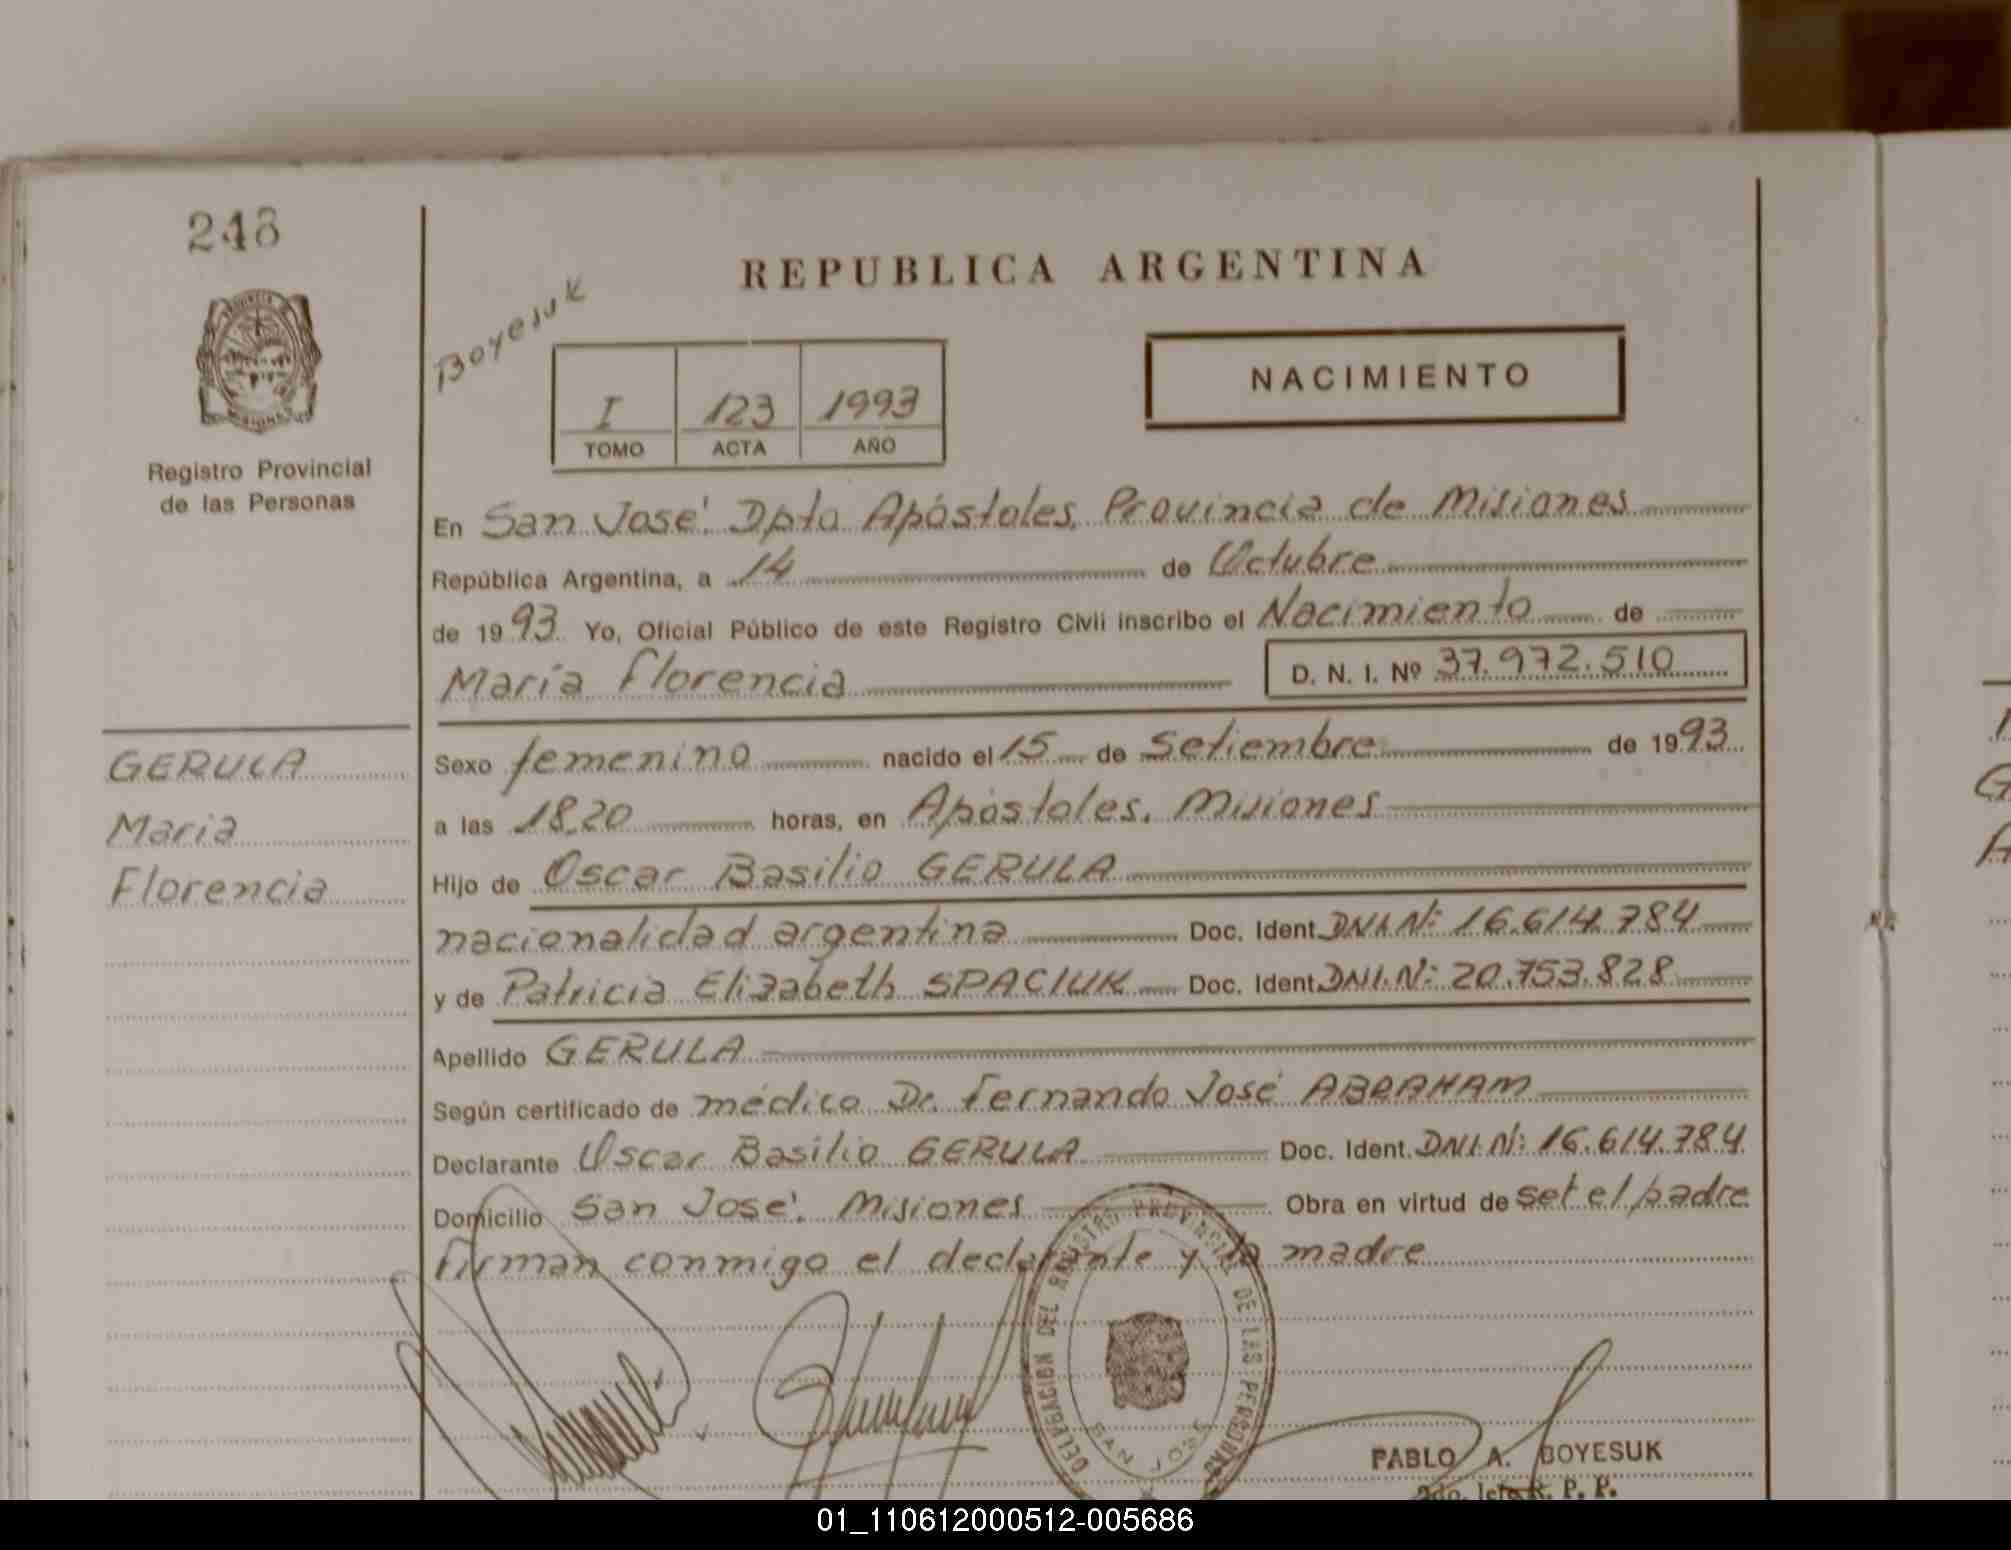 248
Registro Provincial
de las Personas
GERULA
Maria
Florencia
Boyesuk
REPUBLICA ARGENTINA
I 123 1993
TOMO ACTA AÑO
NACIMIENTO
En San José. Dpto Apóstoles, Provincia de Misiones
República Argentina, a 14 de Octubre
de 1993. Yo, Oficial Público de este Registro Civil inscribo el Nacimiento de
María Florencia D. N. I. Nº 37.972.510
Sexo femenino nacido el 15 de Setiembre de 1993
a las 18,20 horas, en Apóstoles. Misiones
Hijo de Oscar Basilio GERULA
nacionalidad argentina Doc. Ident. DNI.Nº: 16.614.784
y de Patricia Elizabeth SPACIUK Doc. Ident. DNI.Nº: 20.753.828
Apellido GERULA
Según certificado de médico Dr. Fernando José ABRAHAM
Declarante Oscar Basilio GERULA Doc. Ident. DNI.Nº: 16.614.784
Domicilio San José. Misiones Obra en virtud de set el padre
Firman conmigo el declarante y la madre
DELEGACION DEL REGISTRO PROVINCIAL DE LAS PERSONAS
SAN JOSE
PABLO A. BOYESUK
R. P. P.
01_110612000512-005686